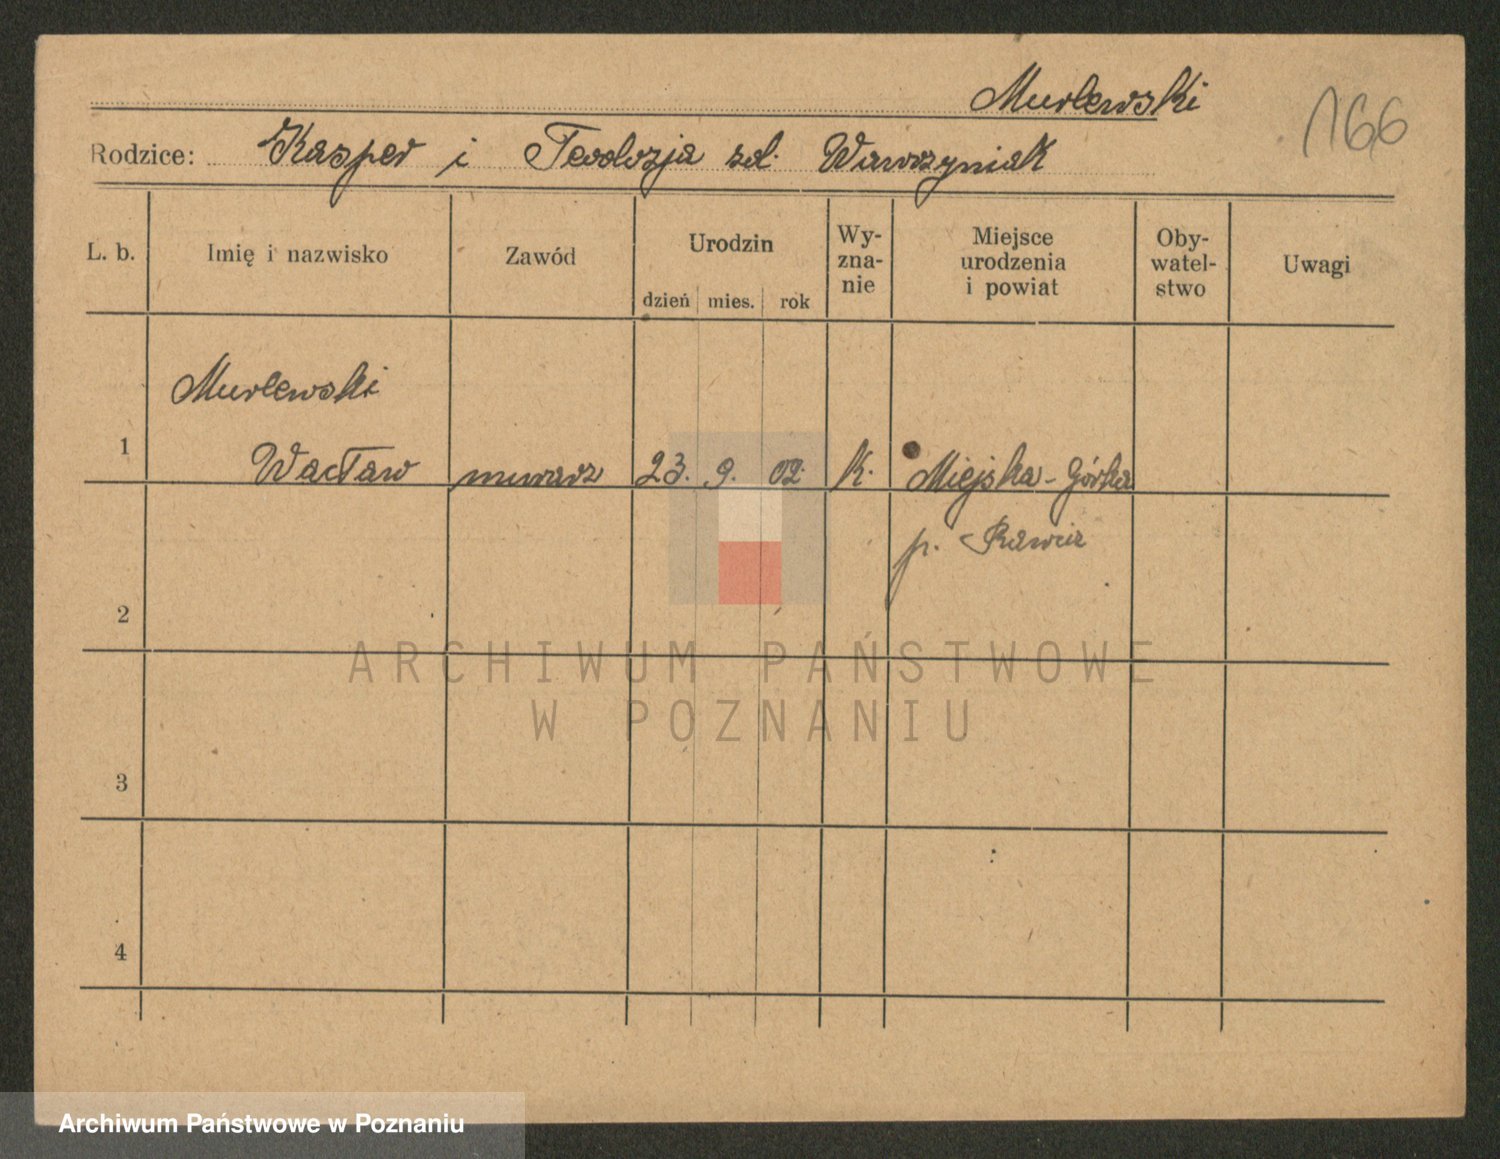 Murlewski
166
Rodzice: Kasper i Teodozja zd. Wawrzyniak
L. b. Imię i nazwisko Zawód Urodzin dzień mies. rok Wy-zna-nie Miejsce urodzenia i powiat Oby-watel-stwo Uwagi
Murlewski
1 Wacław murarz 23. 9. 02. k. Miejska-Górka
p. Rawicz
2
ARCHIWUM PAŃSTWOWE
W POZNANIU
3
4
Archiwum Państwowe w Poznaniu